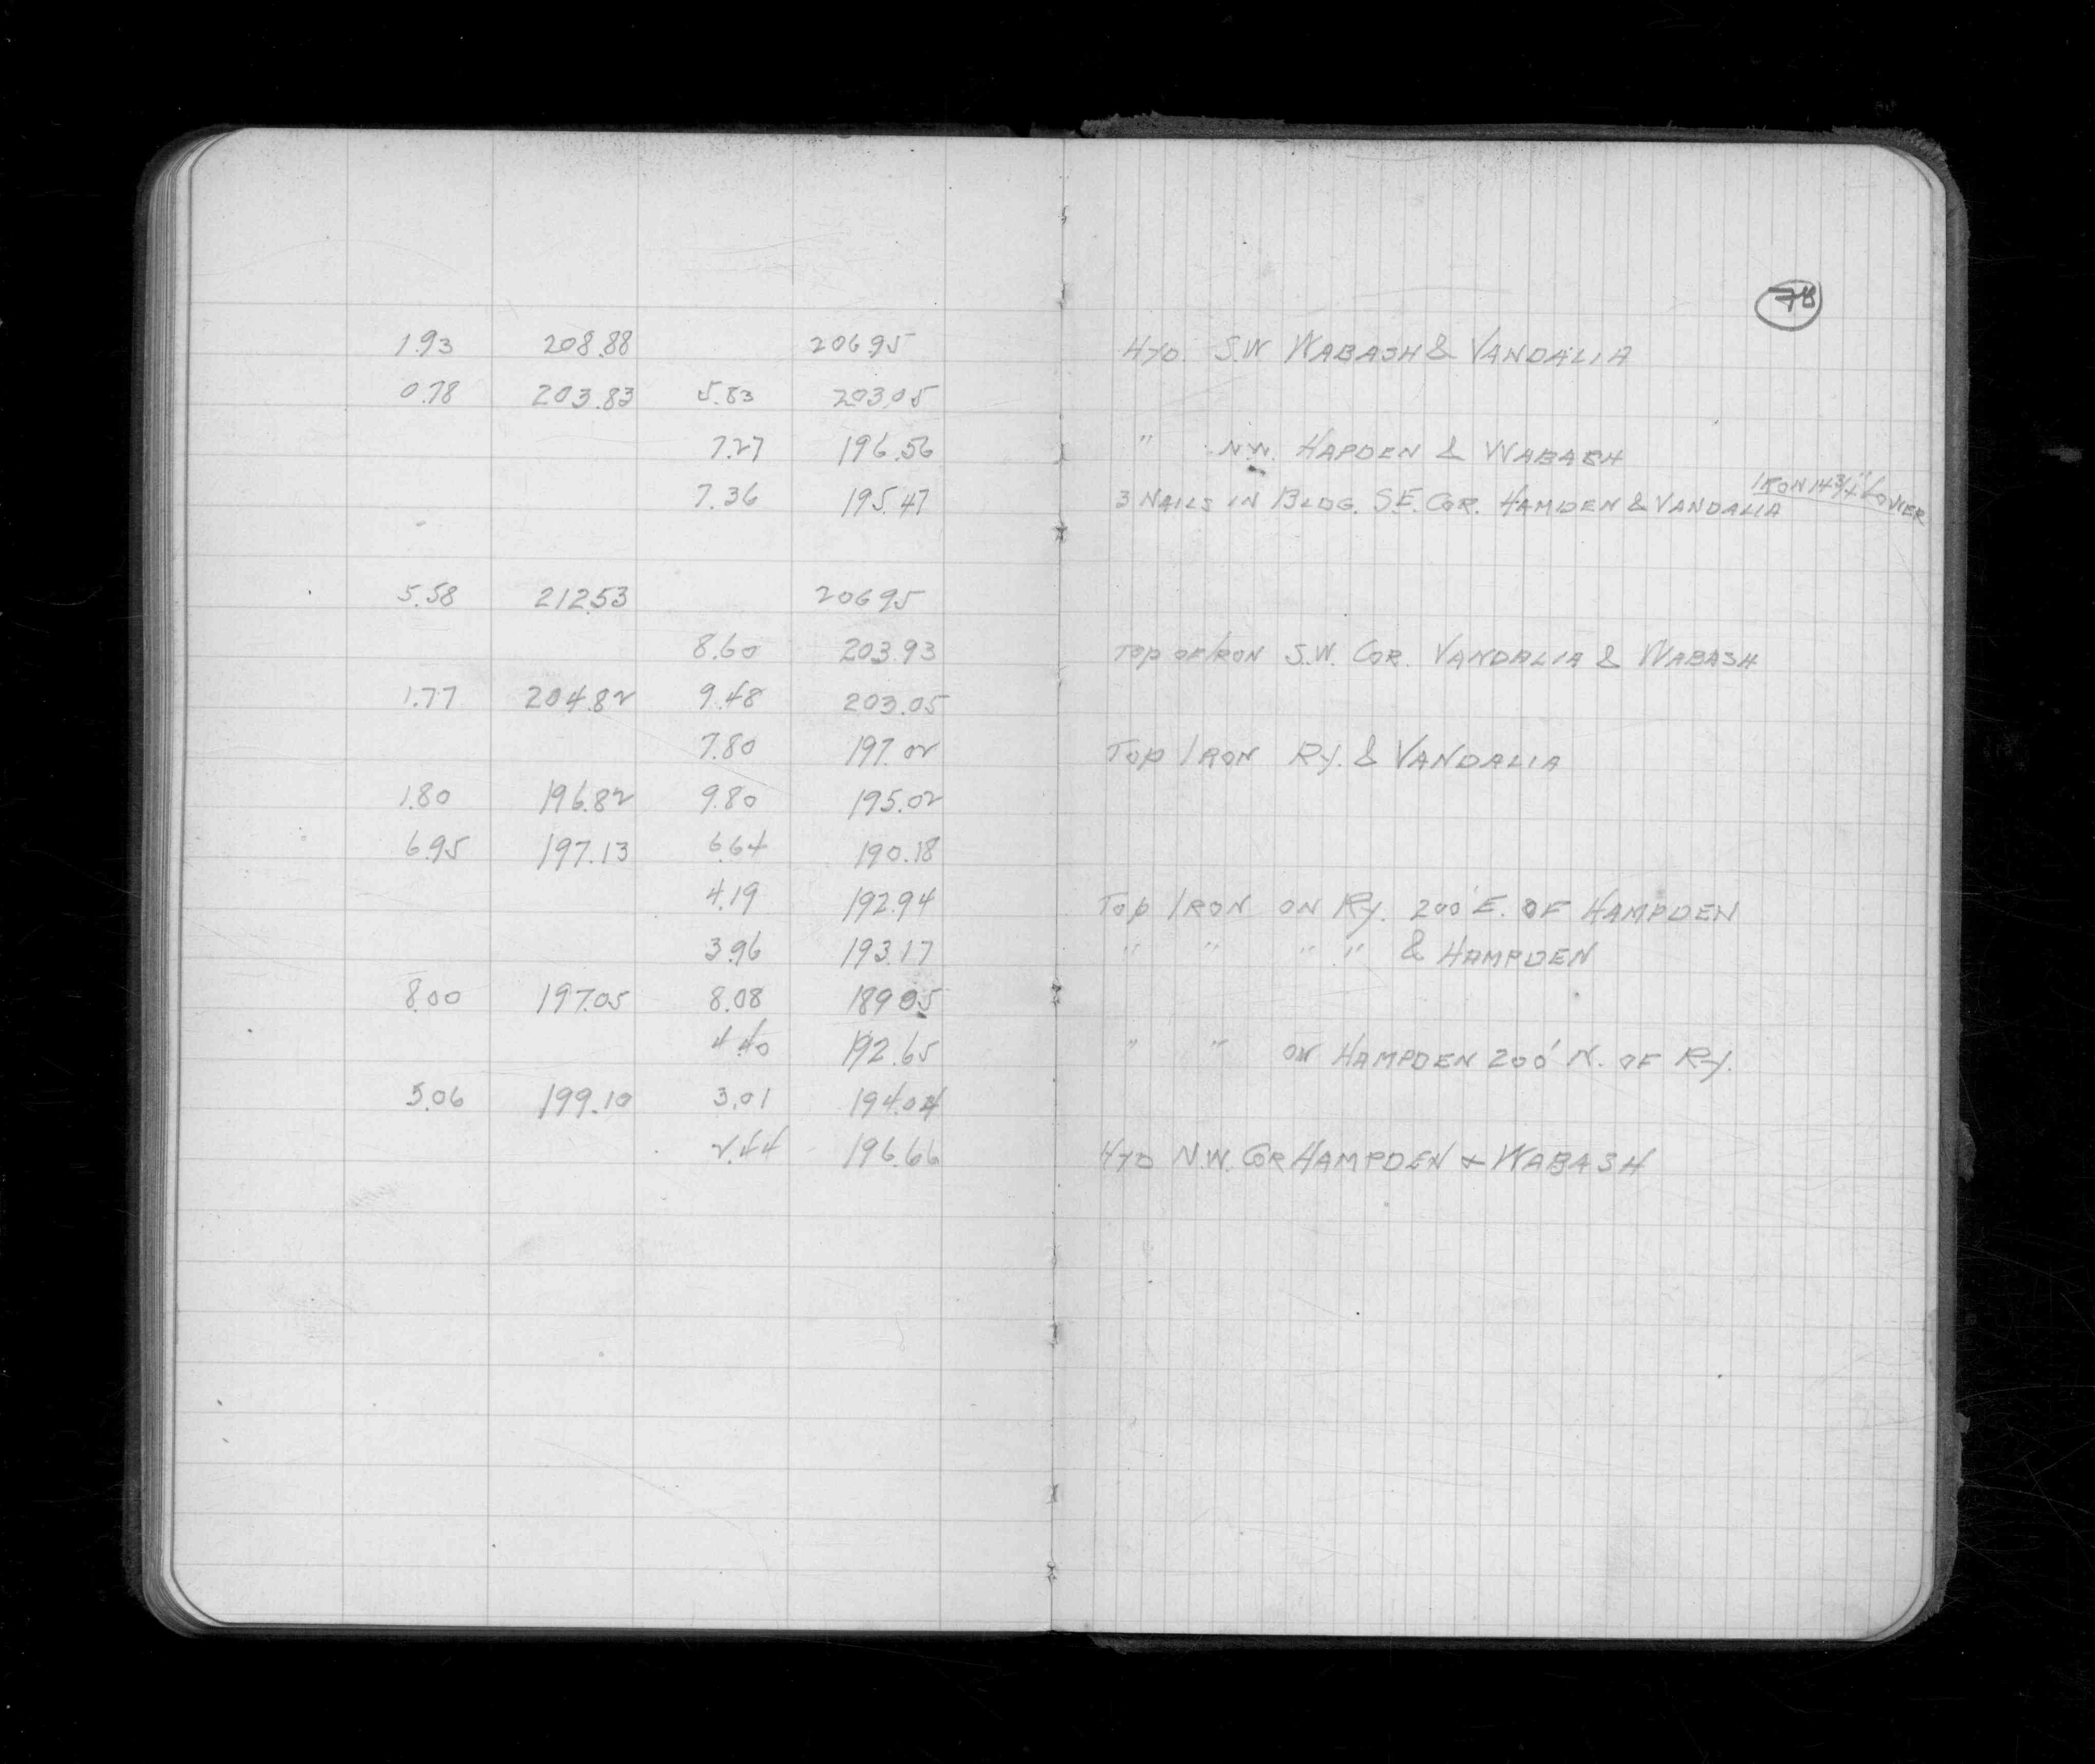 78
1.93 208.88 206.95 HYD. S.W WABASH & VANDALIA
0.78 203.83 5.83 203.05
7.27 196.56 " N.W. HAPDEN & WABASH
7.36 195.47 3 NAILS IN BLDG. S.E. COR. HAMDEN & VANDALIA IRON 14 3/4" LOWER
5.58 212.53 206.95
8.60 203.93 TOP OF IRON S.W. COR. VANDALIA & WABASH
1.77 204.82 9.48 203.05
7.80 197.02 TOP IRON RY. & VANDALIA
1.80 196.82 9.80 195.02
6.95 197.13 6.64 190.18
4.19 192.94 TOP IRON ON RY. 200' E. OF HAMPDEN
3.96 193.17 " " " " & HAMPDEN
8.00 197.05 8.08 189.05
4.40 192.65 " " ON HAMPDEN 200' N. OF RY.
5.06 199.10 3.01 194.04
2.44 196.66 HYD N.W. COR HAMPDEN + WABASH